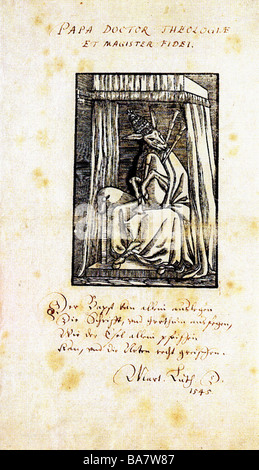 PAPA DOCTOR THEOLOGIÆ
ET MAGISTER FIDEI.
Der Bapst kan allein auslegen
Die Schrifft, und irthum ausfegen,
Wie der Esel allein pfeiffen
Kan, und die Noten recht greiffen.
Mart. Luth. D.
1545
BA7W87